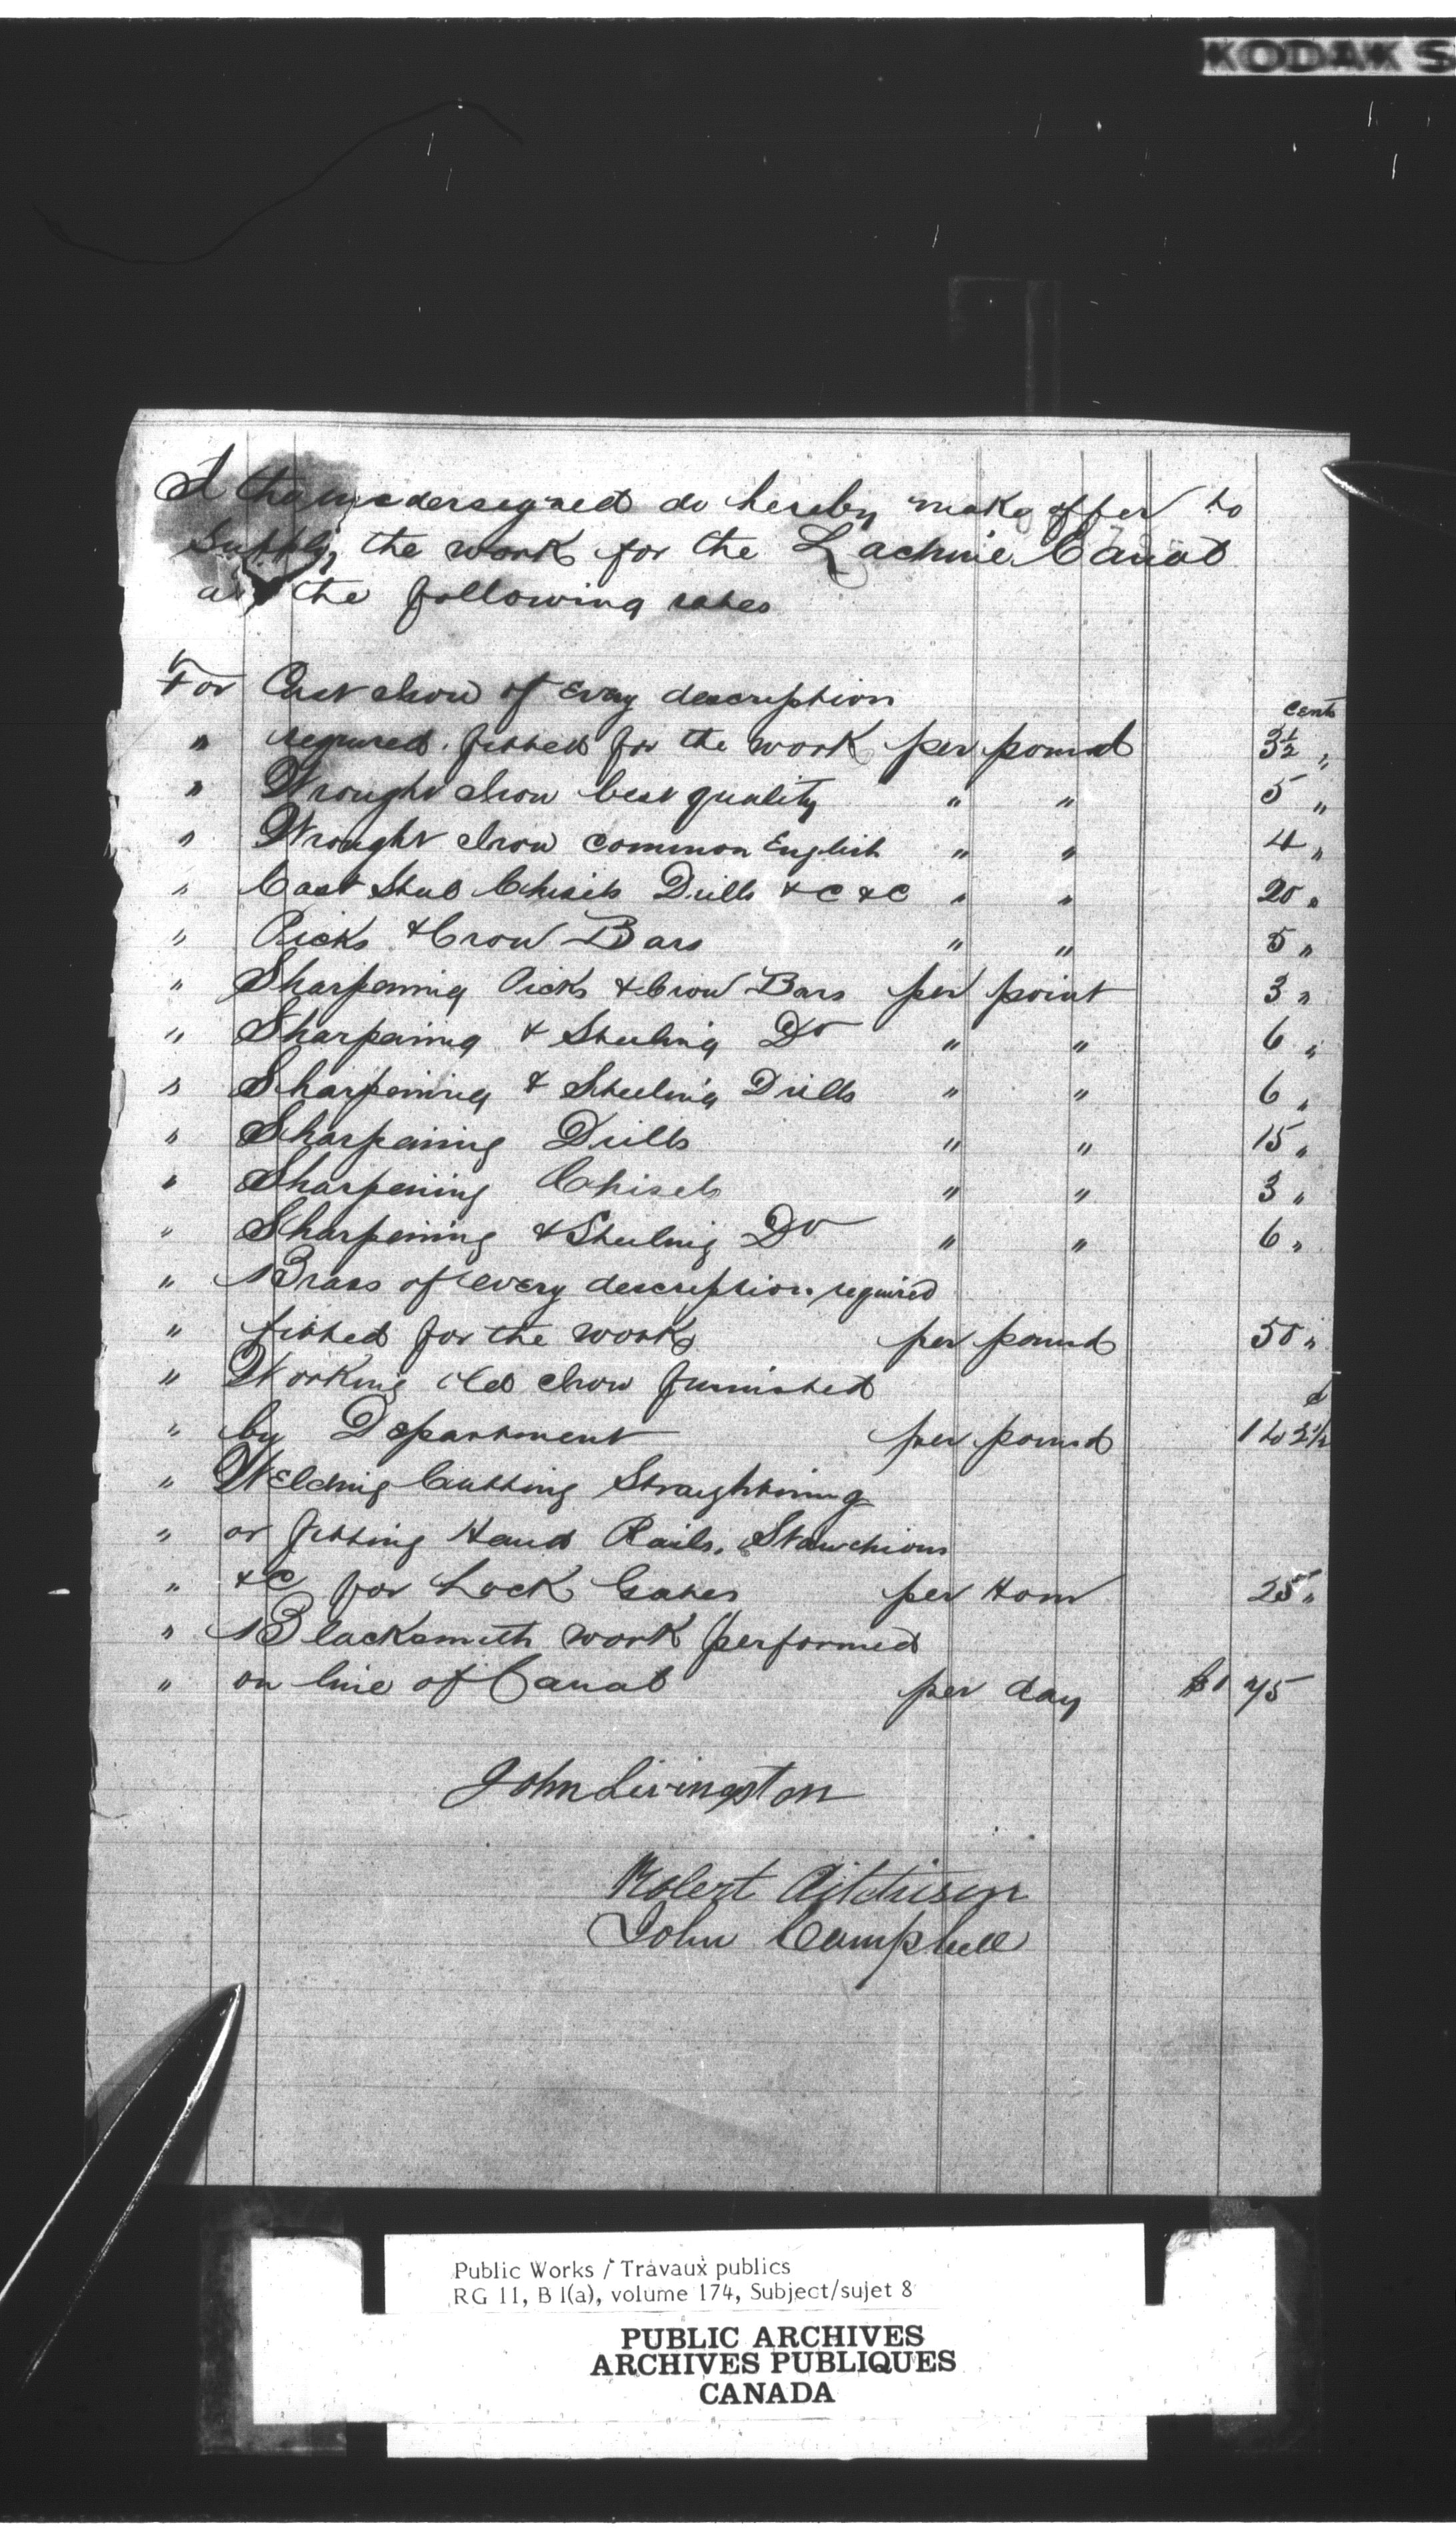 KODAK S
I the undersigned do hereby make offer to
supply the work for the Lachine Canal
at the following rates
For Cast Iron of Every description
cents
" required. fitted for the work per pound 3½ "
" Wrought Iron best quality " " 5 "
" Wrought Iron common English " " 4 "
" Cast Steel Chisels Drills &C &C " " 20 "
" Picks & Crow Bars " " 5 "
" Sharpening Picks & Crow Bars per point 3 "
" Sharpening & Steeling Do " " 6 "
" Sharpening & Steeling Drills " " 6 "
" Sharpening Drills " " 15 "
" Sharpening Chisels " " 3 "
" Sharpening & Steeling Do " " 6 "
" Brass of every description required
" fitted for the works per pound 50 "
" Working Old Iron furnished
" by Department per pound 1 to 2½
" Welding Cutting Straightning
" or fitting Hand Rails, Stawchions
" &C for Lock Gates per Hour 25 "
" Blacksmith work performed
" on line of Canal per day $1 75
John Livingston
Robert Aitchison
John Campbell
Public Works / Travaux publics
RG 11, B 1(a), volume 174, Subject/sujet 8
PUBLIC ARCHIVES
ARCHIVES PUBLIQUES
CANADA